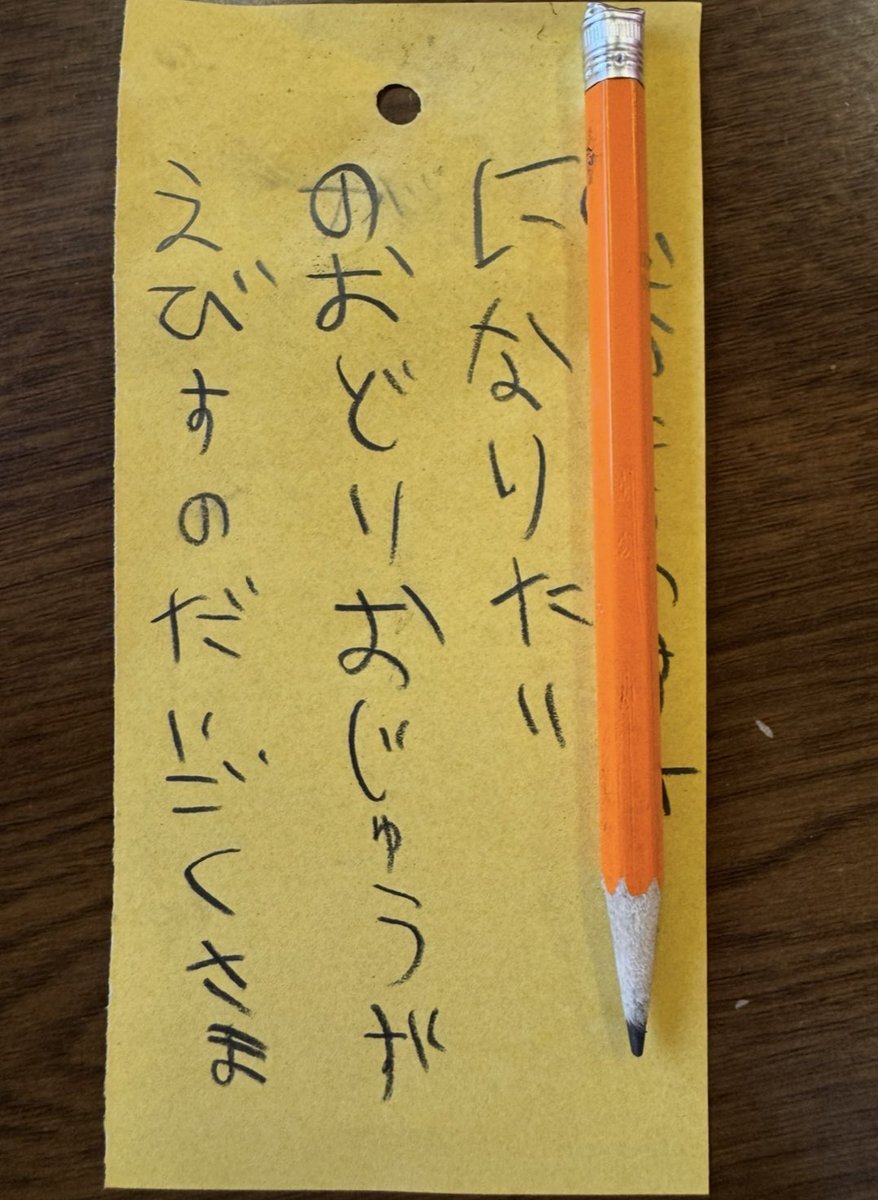 になりたい
のおどりおじゅうず
えびすのだいごくさま